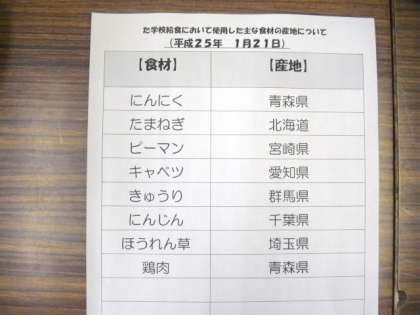 た学校給食において使用した主な食材の産地について
（平成２５年　１月２１日）
【食材】　【産地】
にんにく　青森県
たまねぎ　北海道
ピーマン　宮崎県
キャベツ　愛知県
きゅうり　群馬県
にんじん　千葉県
ほうれん草　埼玉県
鶏肉　青森県